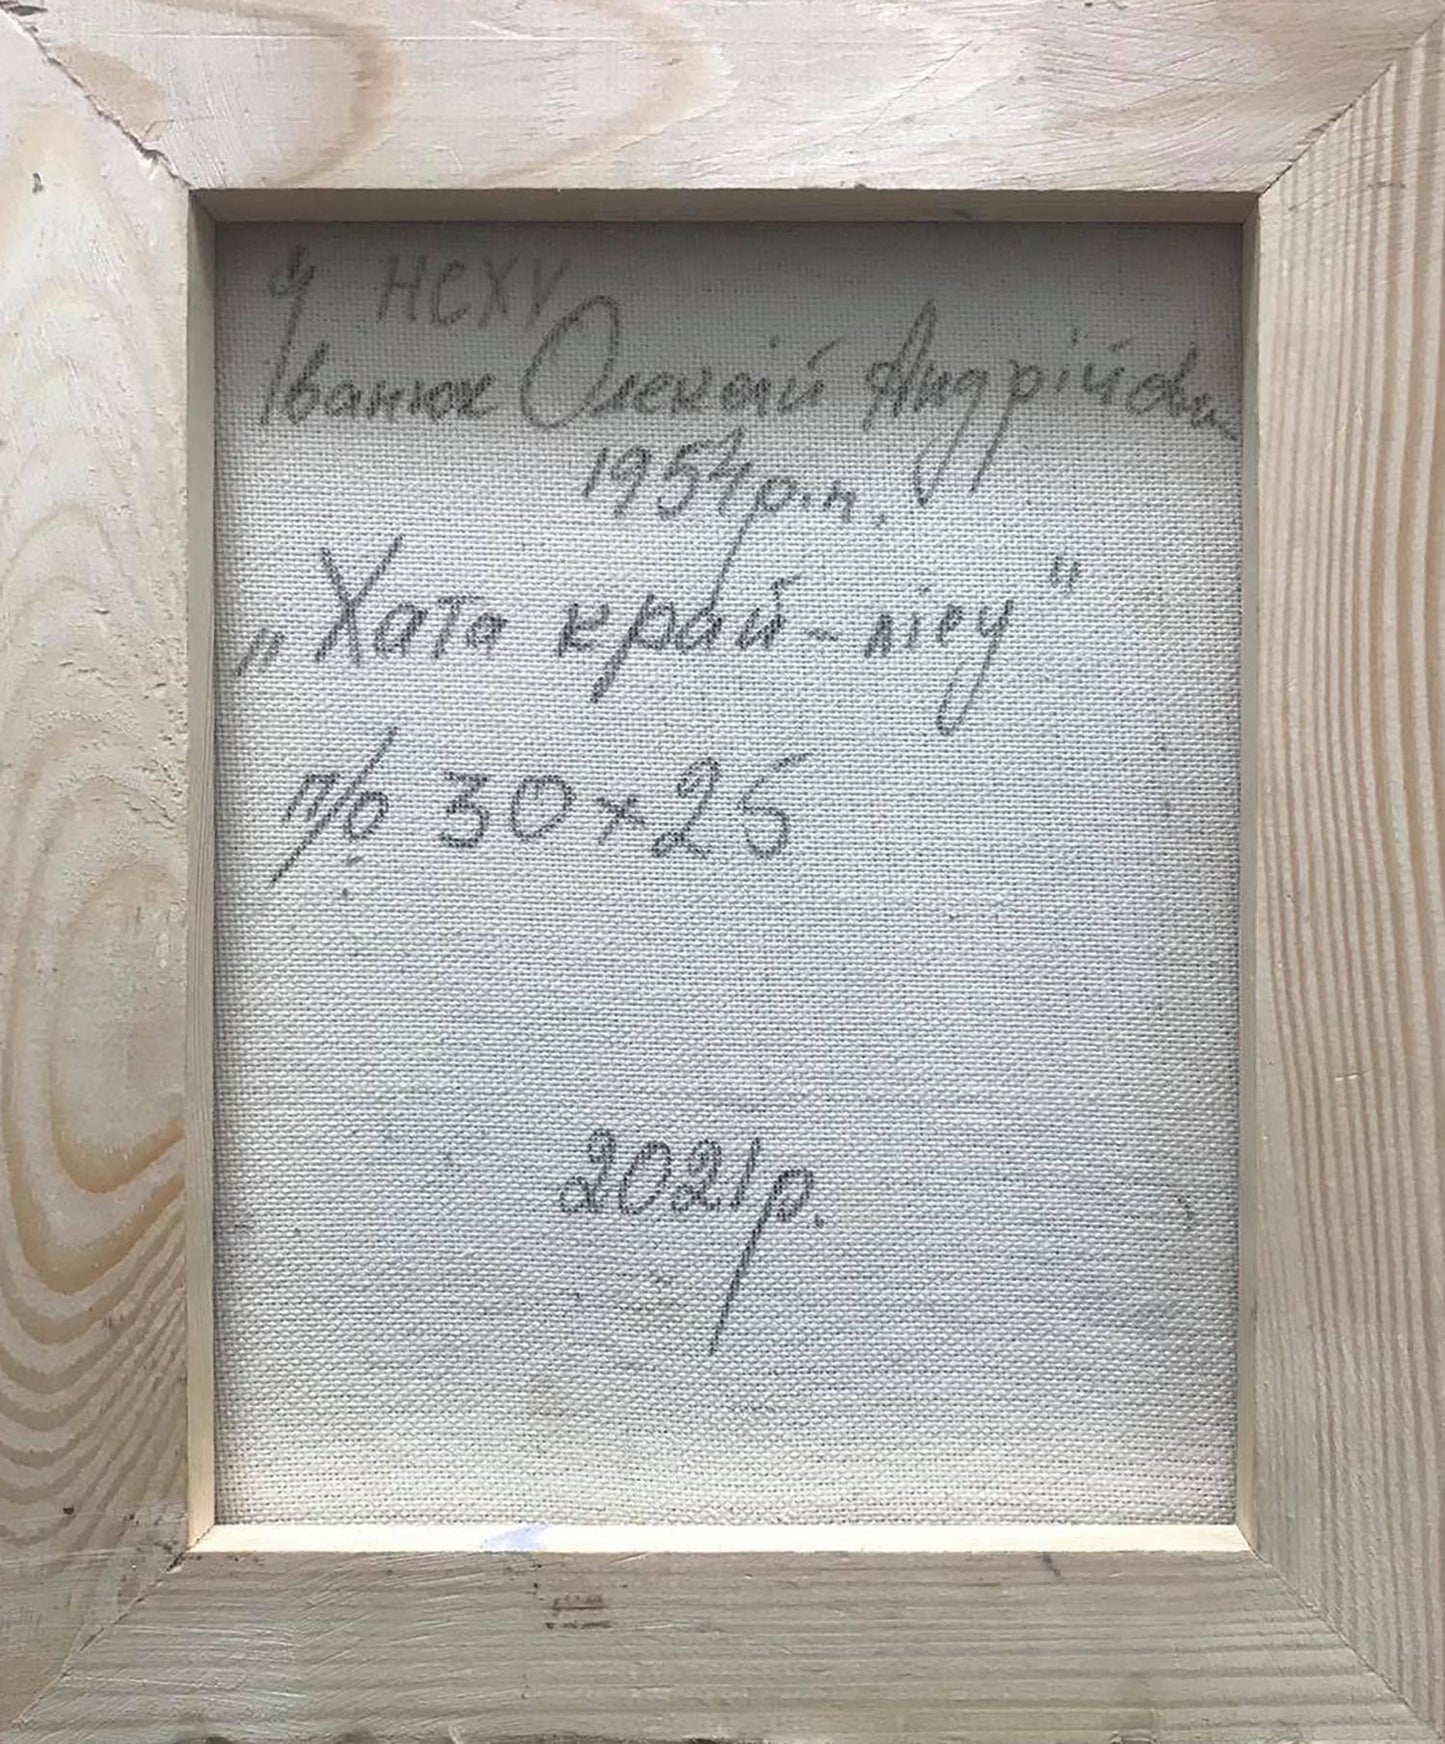 Ч НСХУ
Іванюк Олексій Андрійови
1954 р.н.
„Хата край-лісу"
п/о 30×25
2021р.